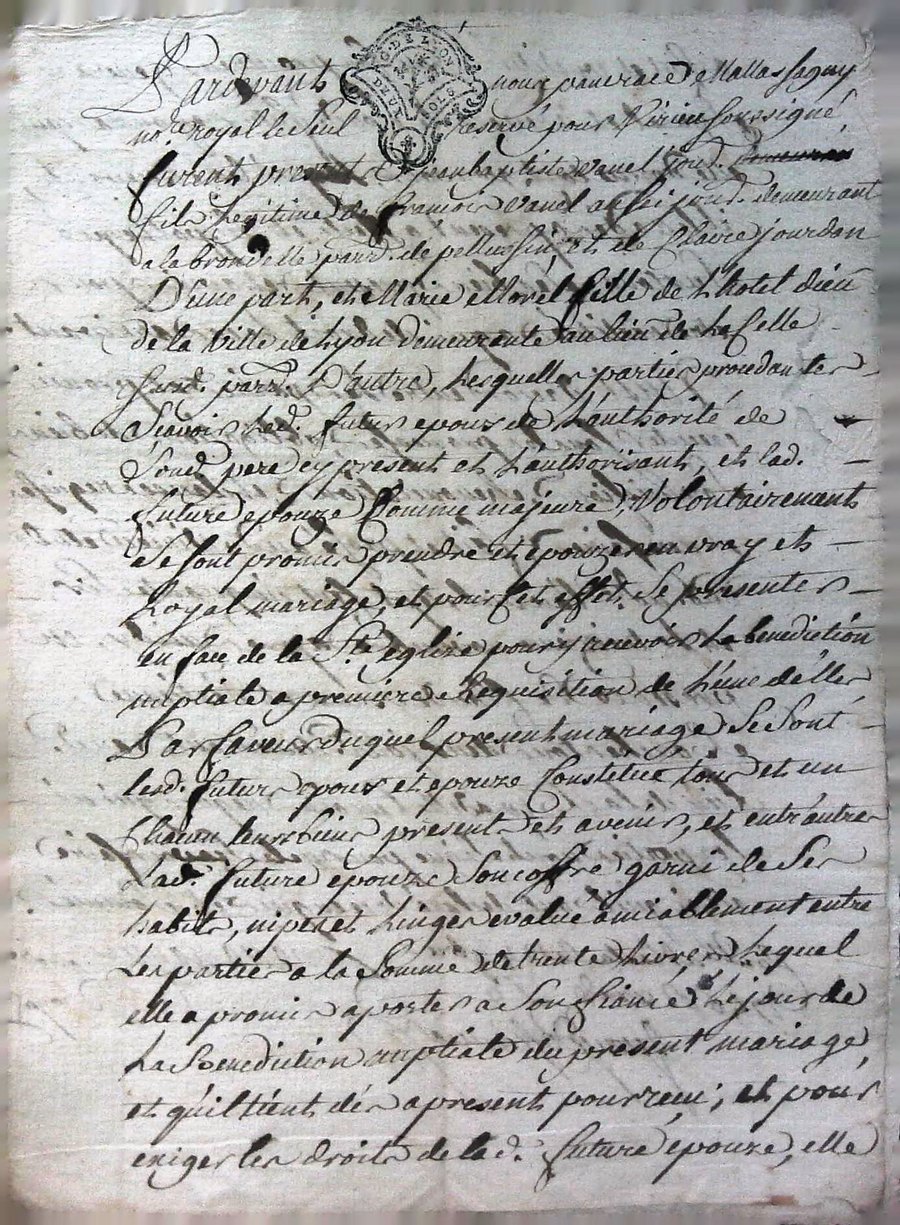 GENE. DE LYON
Pardevant nous pancrace Mallassagny
no.re royal le Seul reservé pour Virieu soussigné,
furent present jean baptiste vanel jourd.
fils legitime de francois vanel aussi jourd. demeurant
a la brondelle parr. de pellussin, et de Claire jourdan
D'une part, et Marie Morel fille de L'hotel dieu
de la Ville de Lyon demeurante au lieu de La Celle
susd. parr. D'autre, Lesquelles parties procedantes
Scavoir Led. futur epoux de L'authorité de
Sond. pere cy present et L'authorisant, et lad.
future epouze Comme majeure, Volontairement
Se sont promis prendre et epouzer en vray et
Loyal mariage, et pour Cet effet Se presenter
en face de la S.te eglize pour y recevoir La benediction
nuptiale a premiere Requisition de L'une d'élles
Par faveur duquel present mariage Se Sont
lesd. futurs epoux et epouze Constitué tous et un
Chacun leurs biens present et avenir, et entr'autres
Lad. future epouze Son coffre garni de Ses
habits, nipes et Linges evalué amiablement entre
Les parties a la Somme de trente Livres Lequel
elle a promis aporter a Son fiancé Le jour de
La Benediction nuptiale du present mariage
et qu'il tient dés a present pour recu; et pour
exiger les droits de lad. future épouze, elle